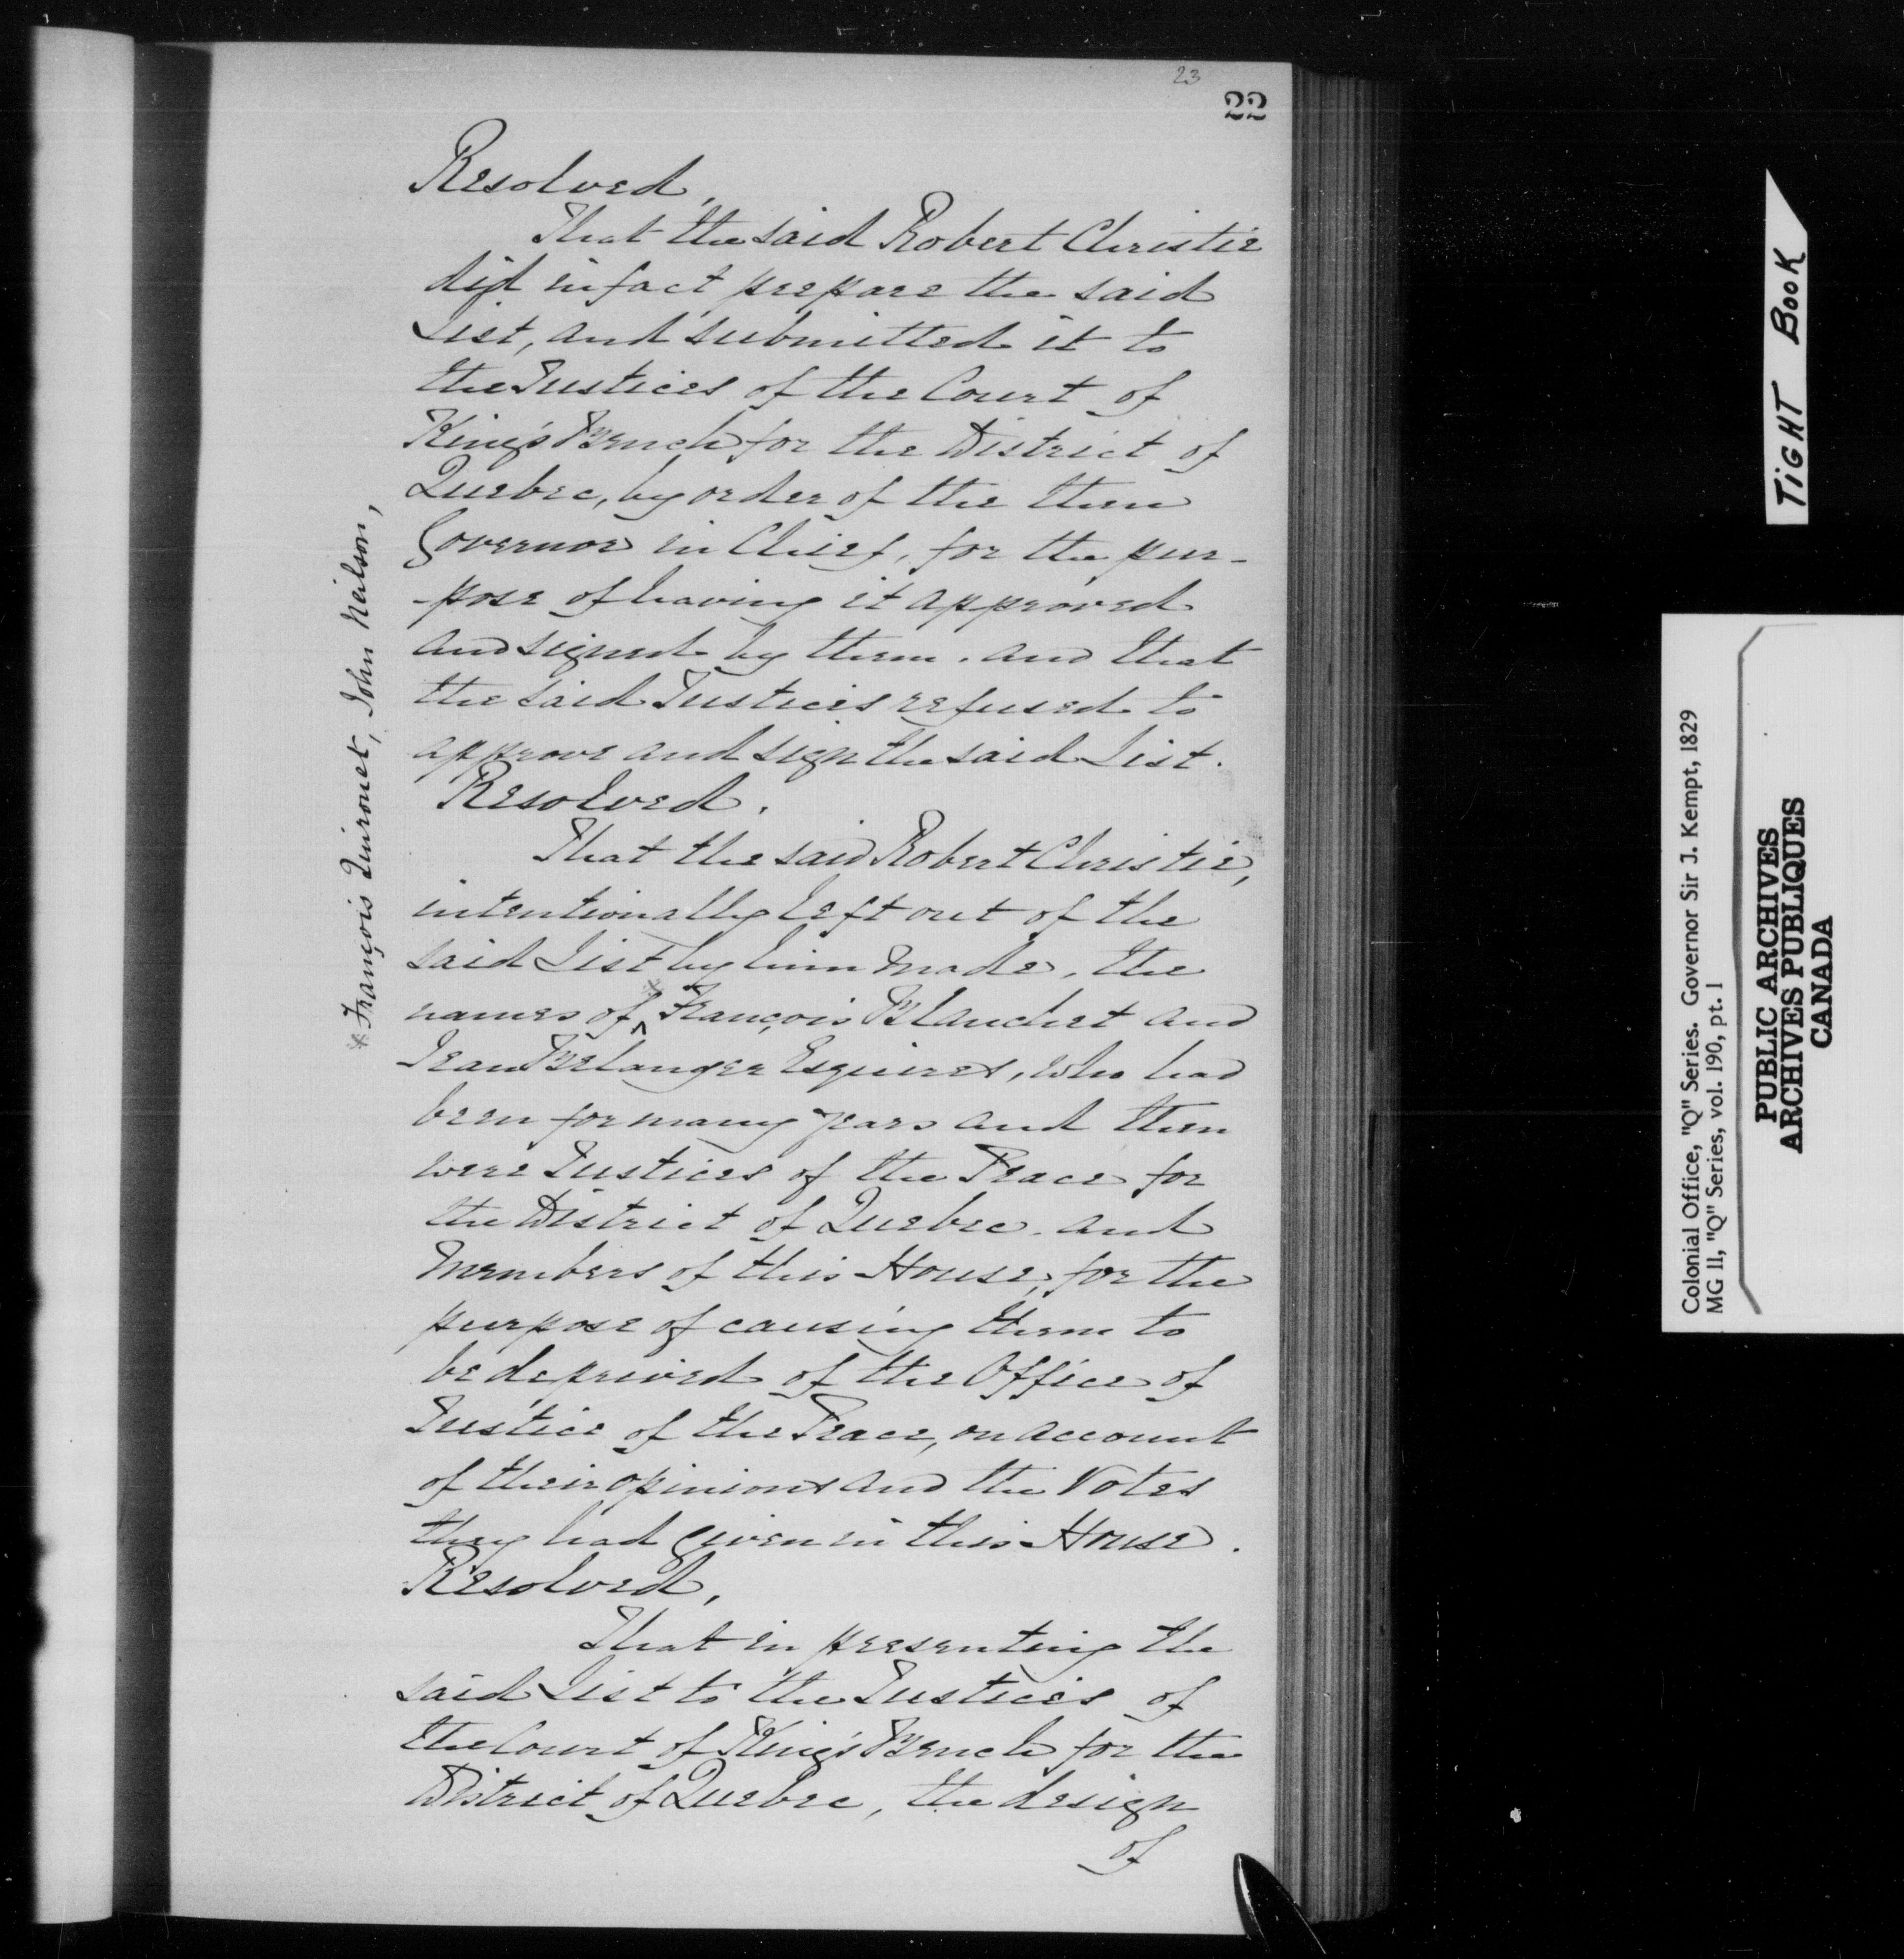 23
22
Resolved,
That the said Robert Christie
did in fact prepare the said
List, and submitted it to
the Justices of the Court of
King's Bench for the District of
Quebec, by order of the then
Governor in Chief, for the pur-
-pose of having it approved
and signed by them. and that
the said Justices refused to
approve and sign the said List.
Resolved.
That the said Robert Christie,
intentionally left out of the
said List by him made, the
names of ^* François Blanchet and
Jean Belanger Esquires, who had
been for many years and then
were Justices of the Peace for
the District of Quebec. and
Members of this House, for the
purpose of causing them to
be deprived of the Office of
Justice of the Peace, on account
of their opinions and the Votes
they had given in this House.
Resolved,
That in presenting the
said List to the Justices of
the Court of King's Bench for the
District of Quebec, the design
of
* François Quirouet, John Neilson,
TIGHT BOOK
Colonial Office, "Q" Series. Governor Sir J. Kempt, 1829
MG 11, "Q" Series, vol. 190, pt. 1
PUBLIC ARCHIVES
ARCHIVES PUBLIQUES
CANADA